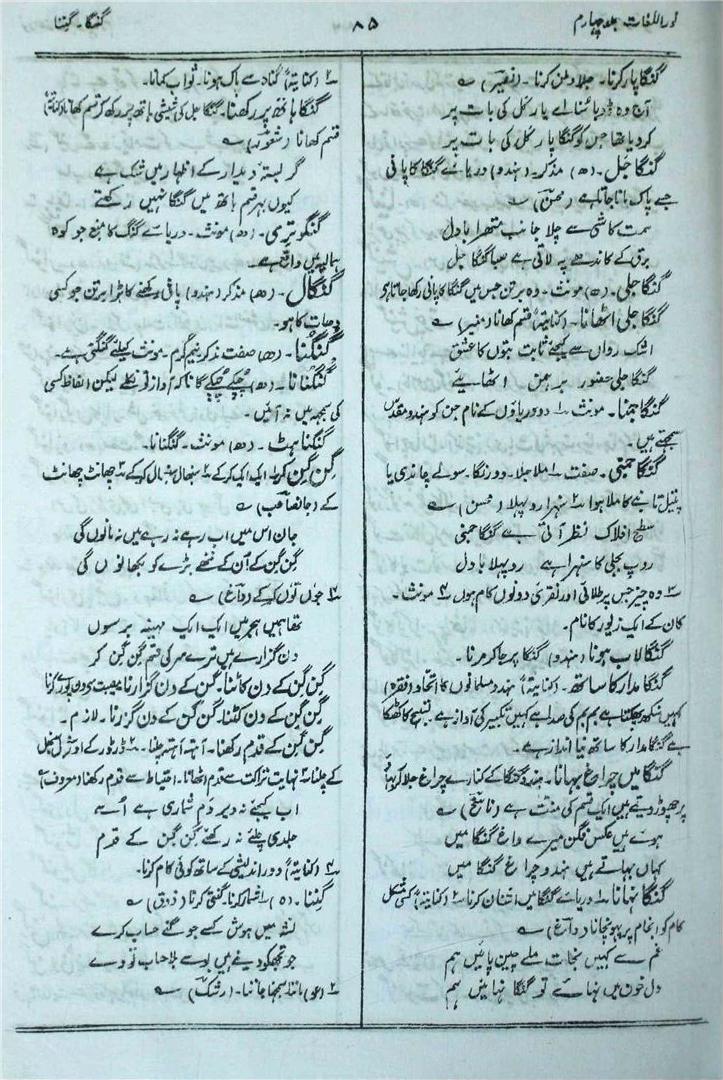 نور اللغات جلد چہارم
۸۵
گنگا۔ گننا
گنگا پار کرنا۔ جلا وطن کرنا۔ (نصیر) ؎
آج وہ دریائے اے یار کل کی بات پر
کر دیا تھا جن کو گنگا پار کل کی بات پر
گنگا جَل۔ (ھ) مذکر۔ (ہندو) دریائے گنگا کا پانی
جسے پاک مانا جاتا ہے (محسن) ؎
سمت کاشی سے چلا جانب متھرا بادل
برق کے کاندھے پہ لاتی ہے صبا گنگا جل
گنگا جلی۔ (ھ) مونث۔ وہ برتن جس میں گنگا کا پانی رکھا جاتا ہو
گنگا جلی اٹھانا۔ (کنایۃً) قسم کھانا (منیر) ؎
اشک رواں سے کیجئے ثابت بتوں کا عشق
گنگا جلی حضور برہمن اٹھایئے
گنگا جمنا۔ مونث ۱ دو دریاؤں کے نام جن کو ہندو مقدس
سمجھتے ہیں۔
گنگا جمنی۔ صفت ۱ ملا جلا۔ دو رنگا۔ سونے چاندی یا
پیتل تانبے کا ملا ہوا ۲ سنہرا روپہلا (محسن) ؎
سطح افلاک نظر آتی ہے گنگا جمنی
روپ بجلی کا سنہرا ہے روپہلا بادل
۳ وہ چیز جس پر طلائی اور نقرئی دونوں کام ہوں ۴ مونث۔
کان کے ایک زیور کا نام۔
گنگا لاب ہونا (ہندو) گنگا پر جا کر مرنا۔
گنگا مدار کا ساتھ۔ (کنایۃً) ہندو مسلمانوں کا اتحاد (فقرہ)
کہیں سنکھ پھکتا ہے بم بم کی صدا ہے کہیں تکبیر کی آواز ہے۔ تسبیح کا کھٹکا
ہے گنگا مدار کا ساتھ نیا انداز ہے۔
گنگا میں چراغ بہانا۔ ہندو گنگا کے کنارے چراغ جلا کر
پر چھوڑ دیتے ہیں ایک قسم کی منت ہے (ناسخ) ؎
ہوئے ہیں عکس فگن میرے داغ گنگا میں
کہاں بہاتے ہیں ہندو چراغ گنگا میں
گنگا نہانا ۱ دریائے گنگا میں اشنان کرنا ۲ (کنایۃً) کسی مشکل
کام کو انجام پر پہونچانا (داغ) ؎
غم سے کہیں نجات ملے چین پائیں ہم
دل خون میں نہائے تو گنگا نہائیں ہم
۳ (کنایۃً) گناہ سے پاک ہونا۔ ثواب کمانا۔
گنگا ہاتھ پر رکھنا۔ گنگا جل کی شیشی ہاتھ پر رکھ کر قسم کھانا (کنایۃً)
قسم کھانا (شعور) ؎
گر بستہ دیدار کے اظہار میں شک ہے
کیوں بہر قسم ہاتھ میں گنگا نہیں رکھتے
گنگوتری۔ (ھ) مونث۔ دریائے گنگ کا منبع جو کوہ
ہمالیہ میں واقع ہے۔
گنگال۔ (ھ) مذکر (ہندو) پانی رکھنے کا بڑا برتن جو کسی
دھات کا ہو۔
گنگنا۔ (ھ) صفت مذکر نیم گرم۔ مونث کیلئے گنگنی ہے۔
گنگنانا۔ (ھ) چپکے چپکے گانا کہ آواز تو نکلے لیکن الفاظ کسی
کی سمجھ میں نہ آئیں۔
گنگناہٹ۔ (ھ) مونث۔ گنگنانا۔
گن گن کر ۱ ایک ایک کر کے ۲ سنبھال سنبھال کے ۳ چھانٹ چھانٹ
کے (جانصاحب) ؎
جان اس میں اب رہے نہ رہے میں نہ مانوں گی
گن گن کے آن کے ننھے بڑے کو بکھانوں گی
۴ جوں توں کر کے (داغ) ؎
تھا ہمیں ہجر میں ایک ایک مہینہ برسوں
دن گزارے ہیں ترے سر کی قسم گن گن کر
گن گن کے دن کاٹنا۔ گن کے دن گزارنا۔ مصیبت سے دن پورے کرنا
گن گن کے دن کٹنا۔ گن گن کے دن گزرنا۔ لازم۔
گن گن کے قدم رکھنا۔ آہستہ آہستہ چلنا۔ ۲ ڈر ڈر کے اور سنبھل
کے چلنا ۳ نہایت نزاکت سے قدم اٹھانا۔ احتیاط سے قدم رکھنا (معروف) ؎
اب کہئے نہ دیر دم شماری ہے اسے
جلدی چلئے نہ رکھئے گن گن کے قدم
۴ (کنایۃً) دور اندیشی کے ساتھ کوئی کام کرنا۔
گننا۔ (ھ) ۱ شمار کرنا۔ گنتی کرنا (ذوق) ؎
نشہ میں ہوش کسے جو گنے حساب کرے
جو تجھ کو دینے ہیں بوسے بلا حساب تو دے
۲ (عو) ماننا سمجھنا جاننا۔ (رشک) ؎